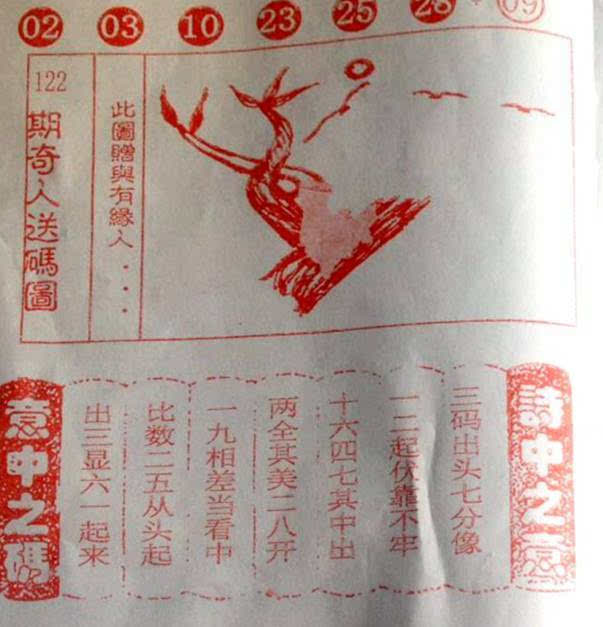 02 03 10 23 25 28 + 09
122
期奇人送碼圖
此圖贈與有緣人....
詩中之意
三码出头七分像
一二起伏靠不牢
十六四七其中出
两全其美二八开
一九相差当看中
比数二五从头起
出三显六一起来
意中之碼